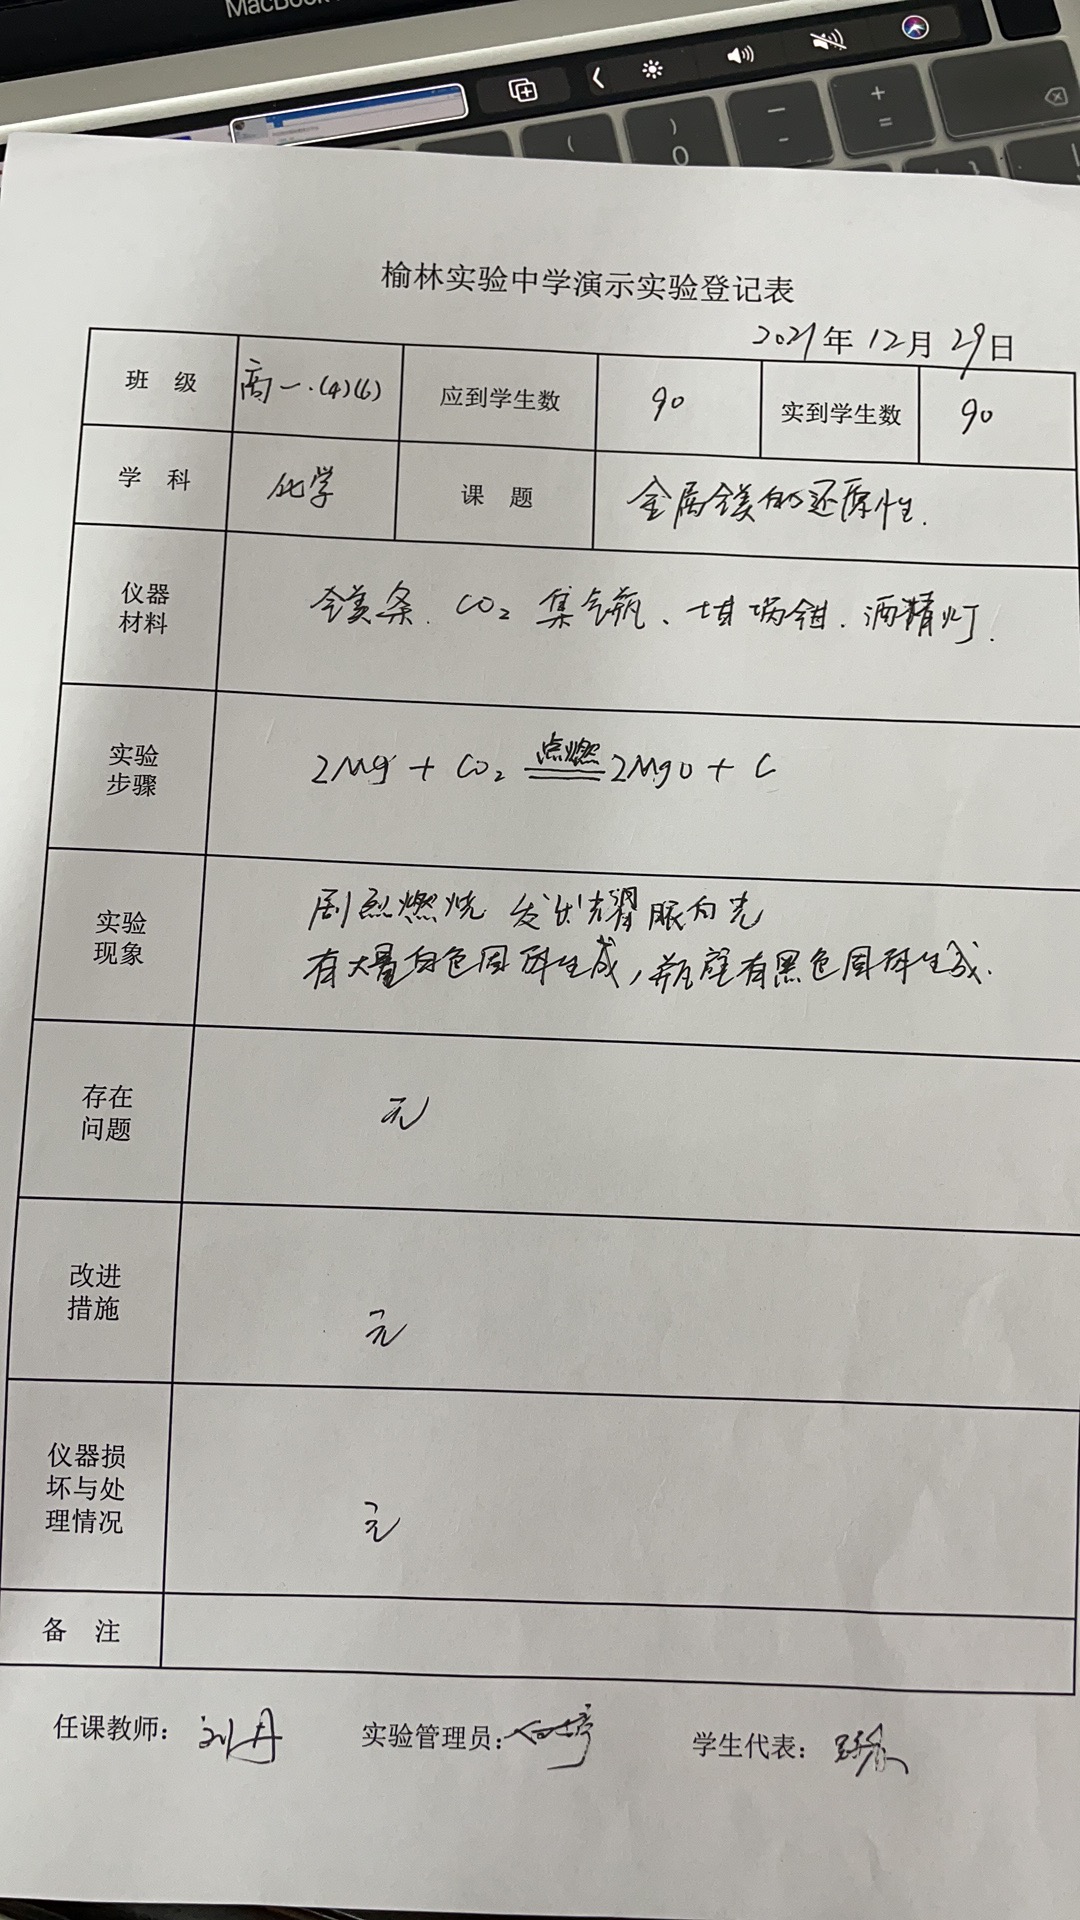 MacBook
榆林实验中学演示实验登记表
2021年 12月 29日
班 级 高一.(4)(6) 应到学生数 90 实到学生数 90
学 科 化学 课 题 金属镁的还原性.
仪器
材料
镁条. CO₂ 集气瓶、坩埚钳. 酒精灯.
实验
步骤
点燃
2Mg + CO₂ == 2MgO + C
实验
现象
剧烈燃烧 发出耀眼白光
有大量白色固体生成,瓶壁有黑色固体生成.
存在
问题
无
改进
措施
无
仪器损
坏与处
理情况
无
备 注
任课教师: 刘丹 实验管理员: 学生代表: